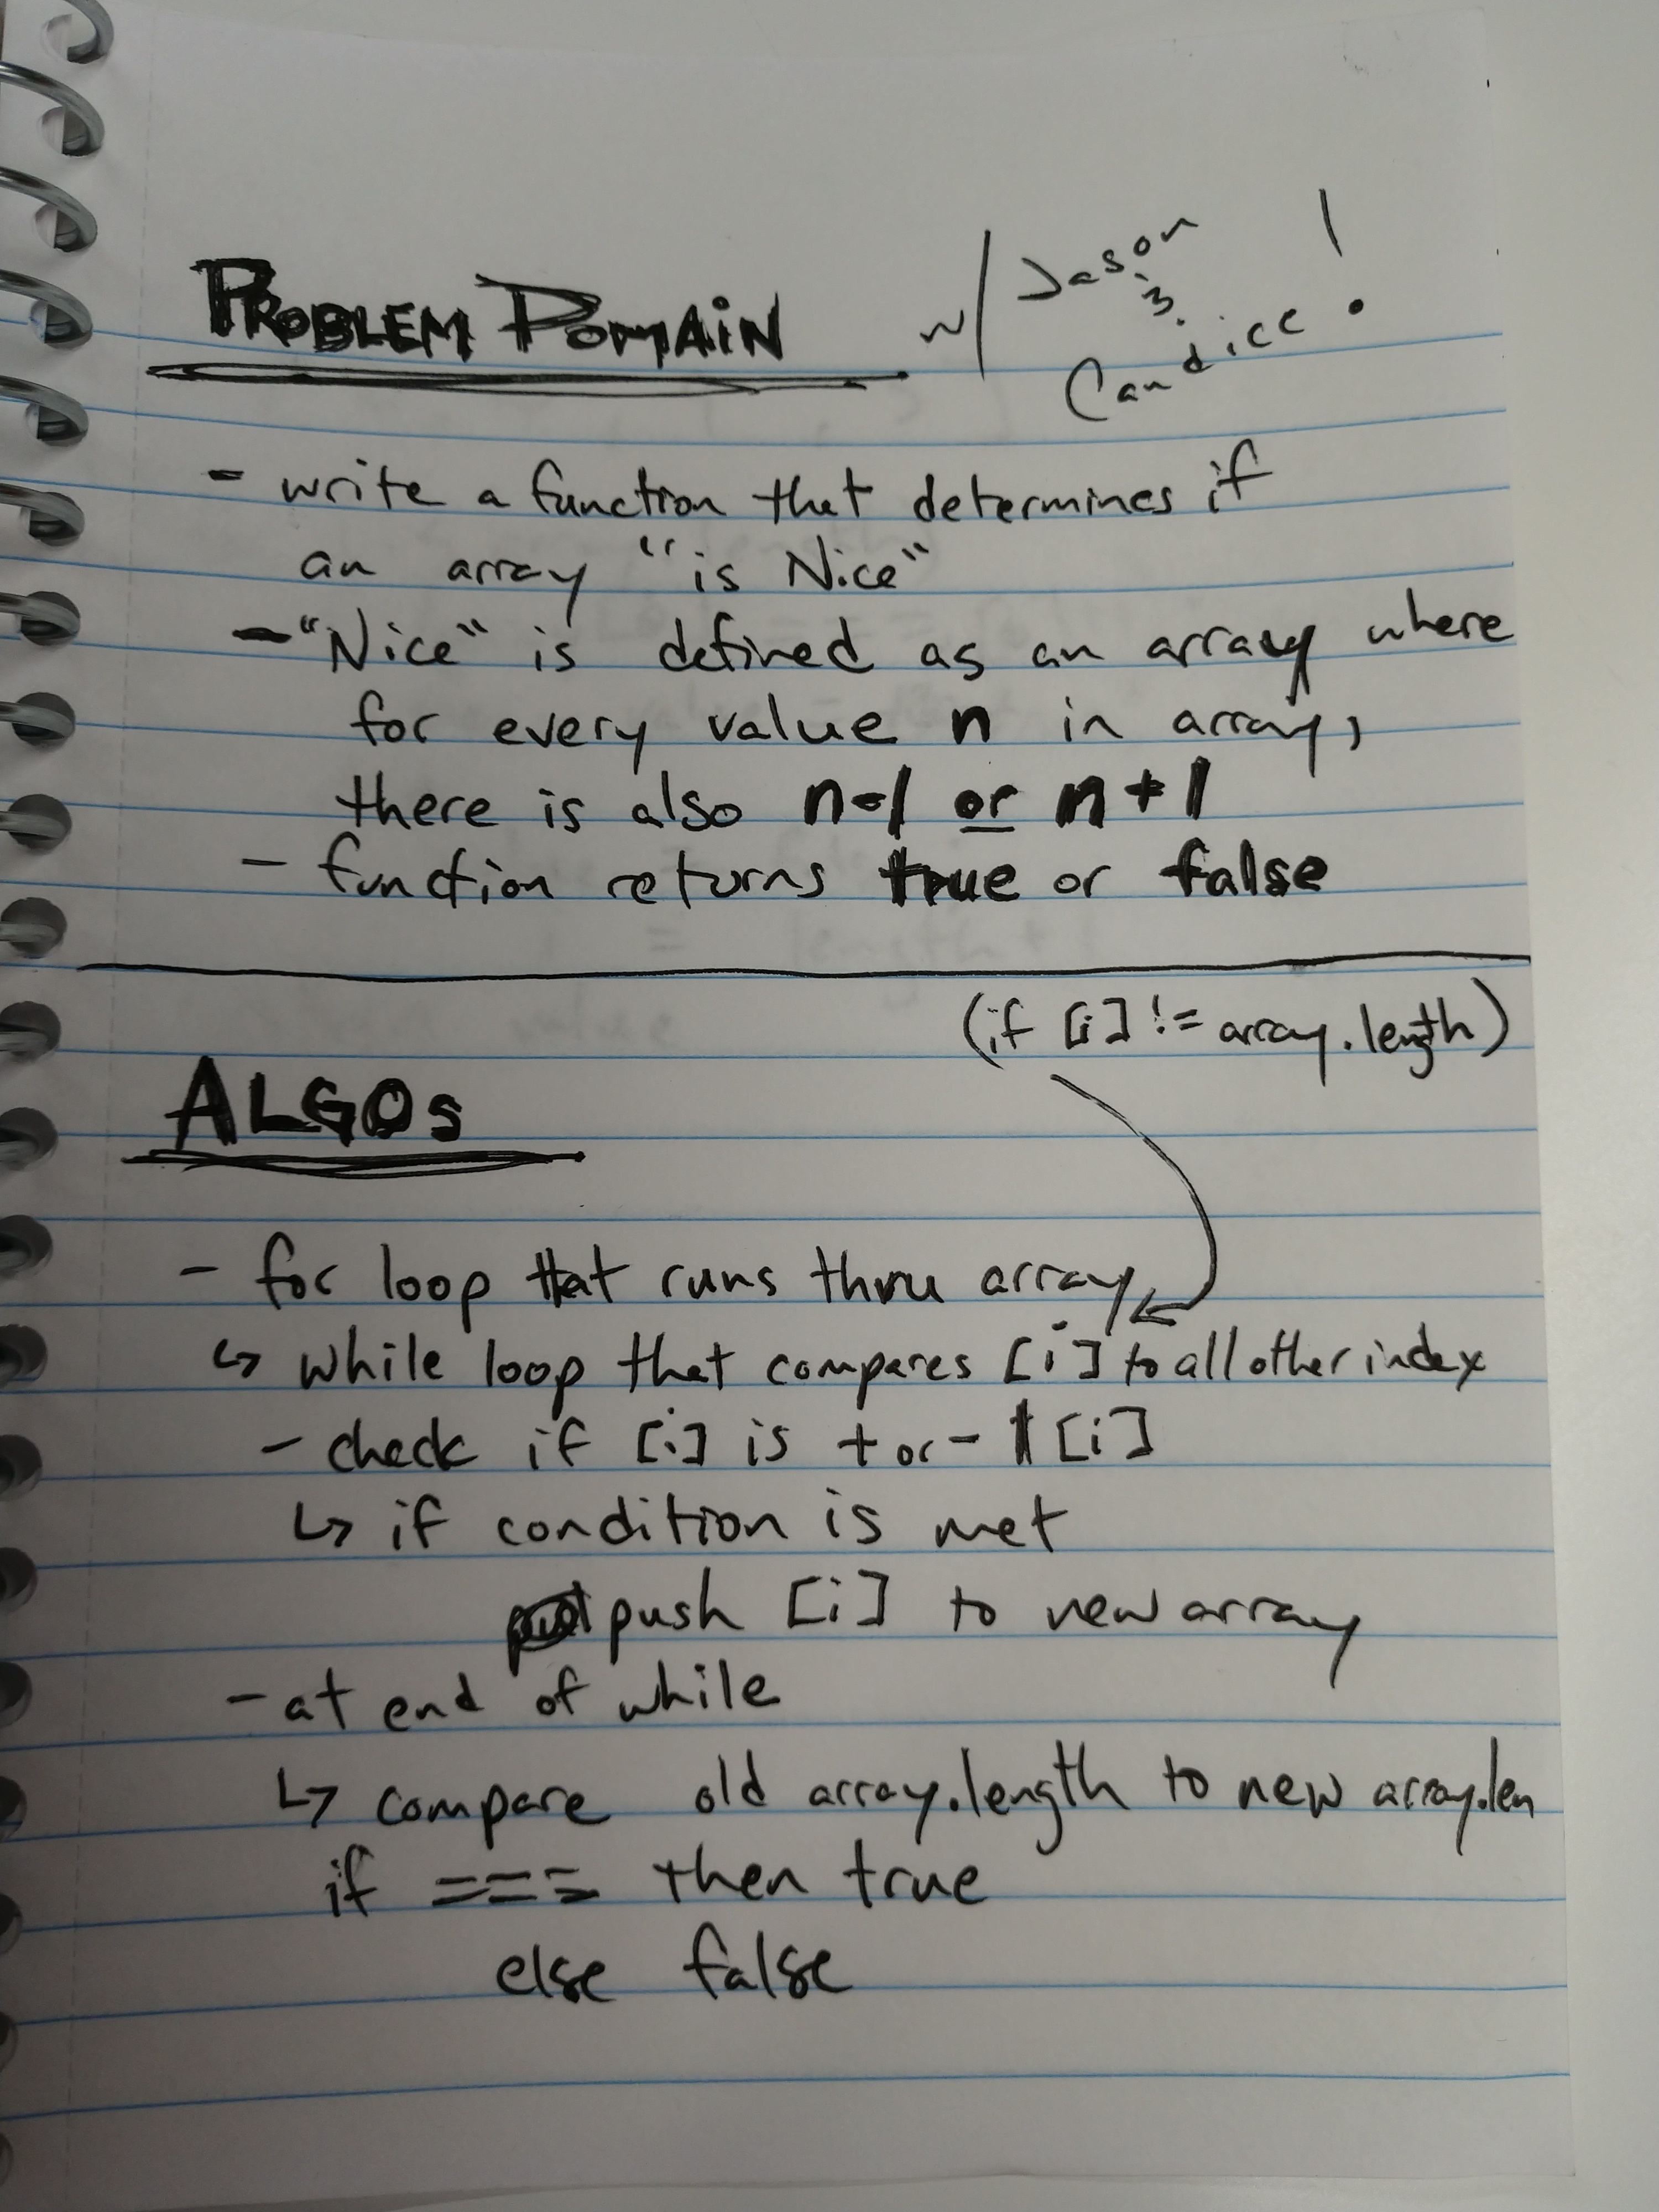 PROBLEM DOMAIN w/ Jason
&
Candice!
- write a function that determines if
an array "is Nice"
- "Nice" is defined as an array where
for every value n in array,
there is also n-1 or n+1
- function returns true or false
(if [i] != array.length)
ALGOs
- for loop that runs thru array
↳ while loop that compares [i] to all other index
- check if [i] is + or - 1 [i]
↳ if condition is met
push [i] to new array
- at end of while
↳ compare old array.length to new array.len
if === then true
else false